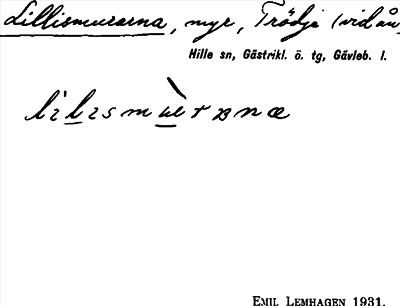 Lillismurarna, myr, Trödje (vid ån
Hille sn, Gästrikl. ö. tg, Gävleb. l.
EMIL LEMHAGEN 1931.